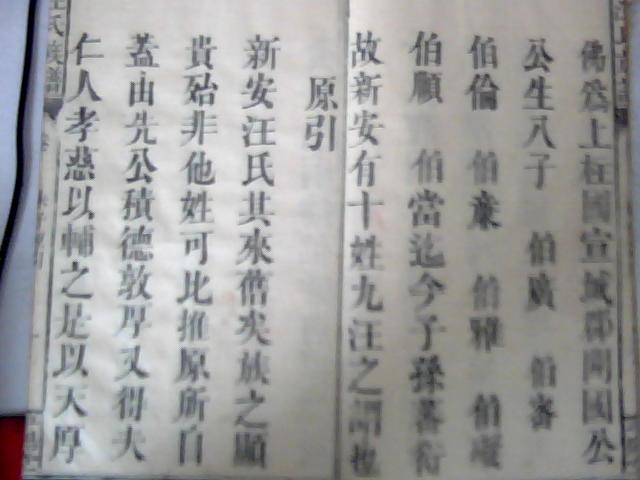 佛爲上柱國宣城郡開國公
公生八子 伯廣 伯審
伯倫 伯 伯雅 伯
伯順 伯當迄今子孫蕃衍
故新安有十姓九汪之謂也
原引
新安汪氏其來舊矣族之顯
貴殆非他姓可比推原所自
蓋由先公積德敦厚又得夫
仁人孝慈以輔之是以天厚
汪氏族譜